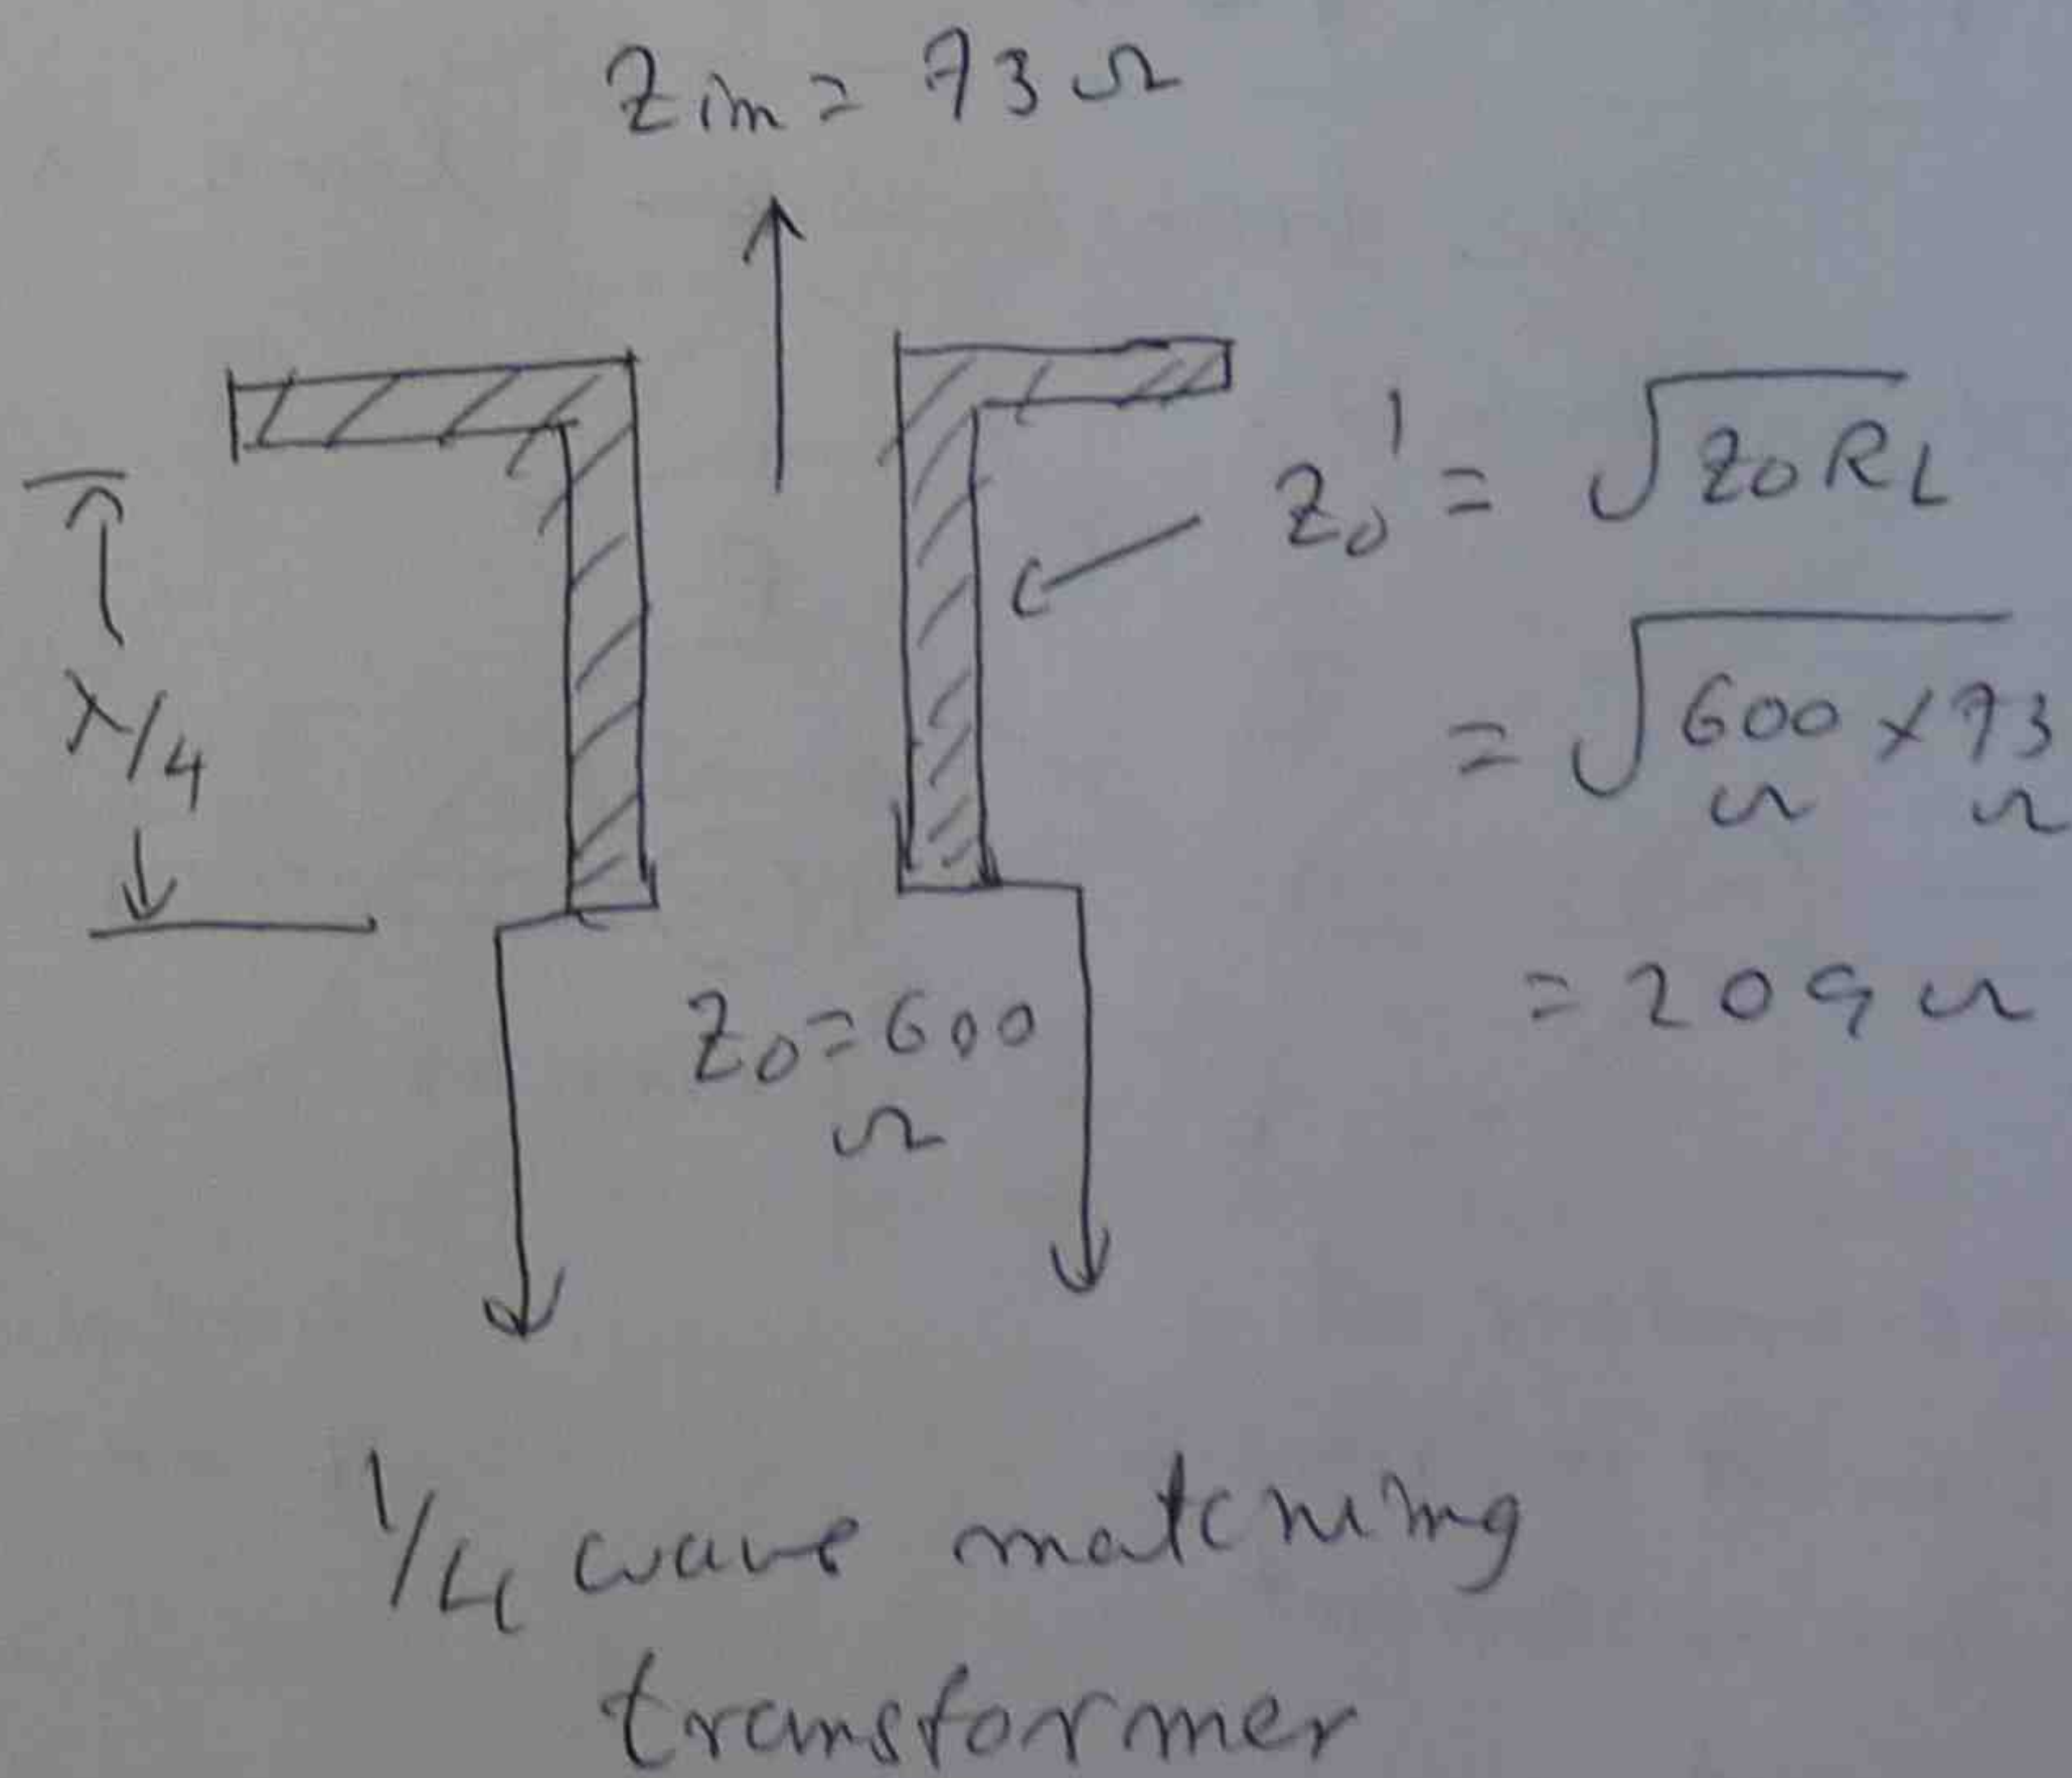 Zin = 73 Ω
Z₀' = √Z₀RL
= √600 × 73
Ω Ω
= 209 Ω
λ/4
Z₀ = 600
Ω
1/4 wave matching
transformer